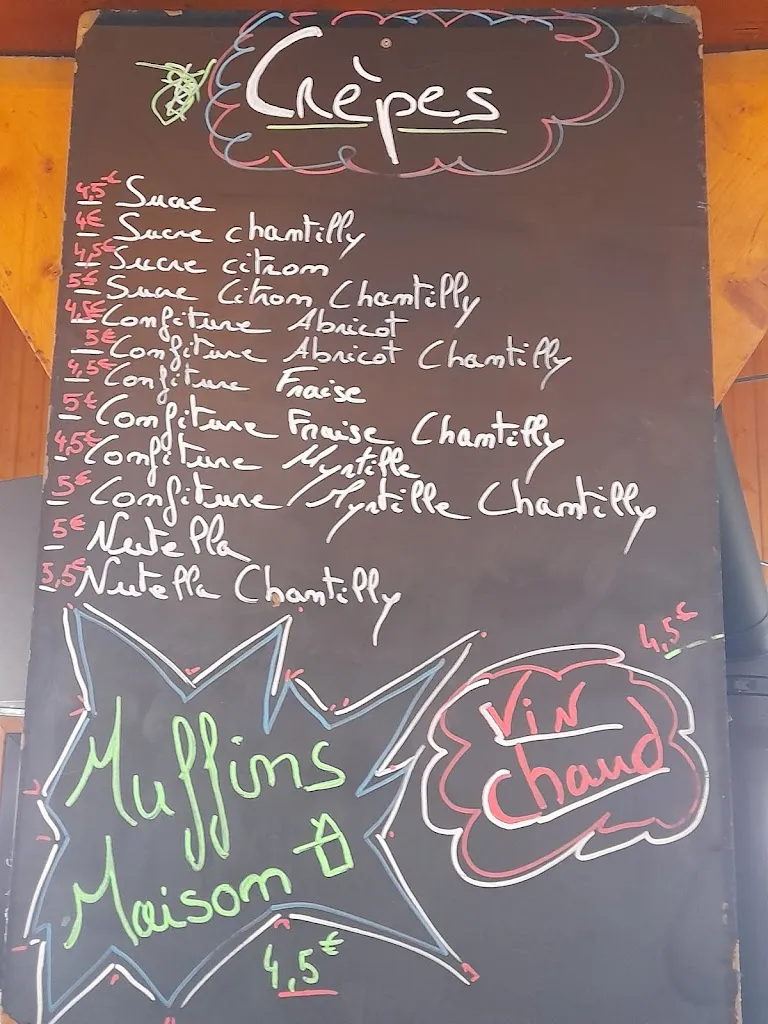 Crèpes
4,5€ Sucre
4€ Sucre chantilly
4,5€ Sucre citron
5€ Sucre Citron Chantilly
4,5€ Confiture Abricot
5€ Confiture Abricot Chantilly
4,5€ Confiture Fraise
5€ Confiture Fraise Chantilly
4,5€ Confiture Myrtille
5€ Confiture Myrtille Chantilly
5€ Nutella
5,5€ Nutella Chantilly
Muffins
Maison
4,5€
4,5€
Vin
chaud